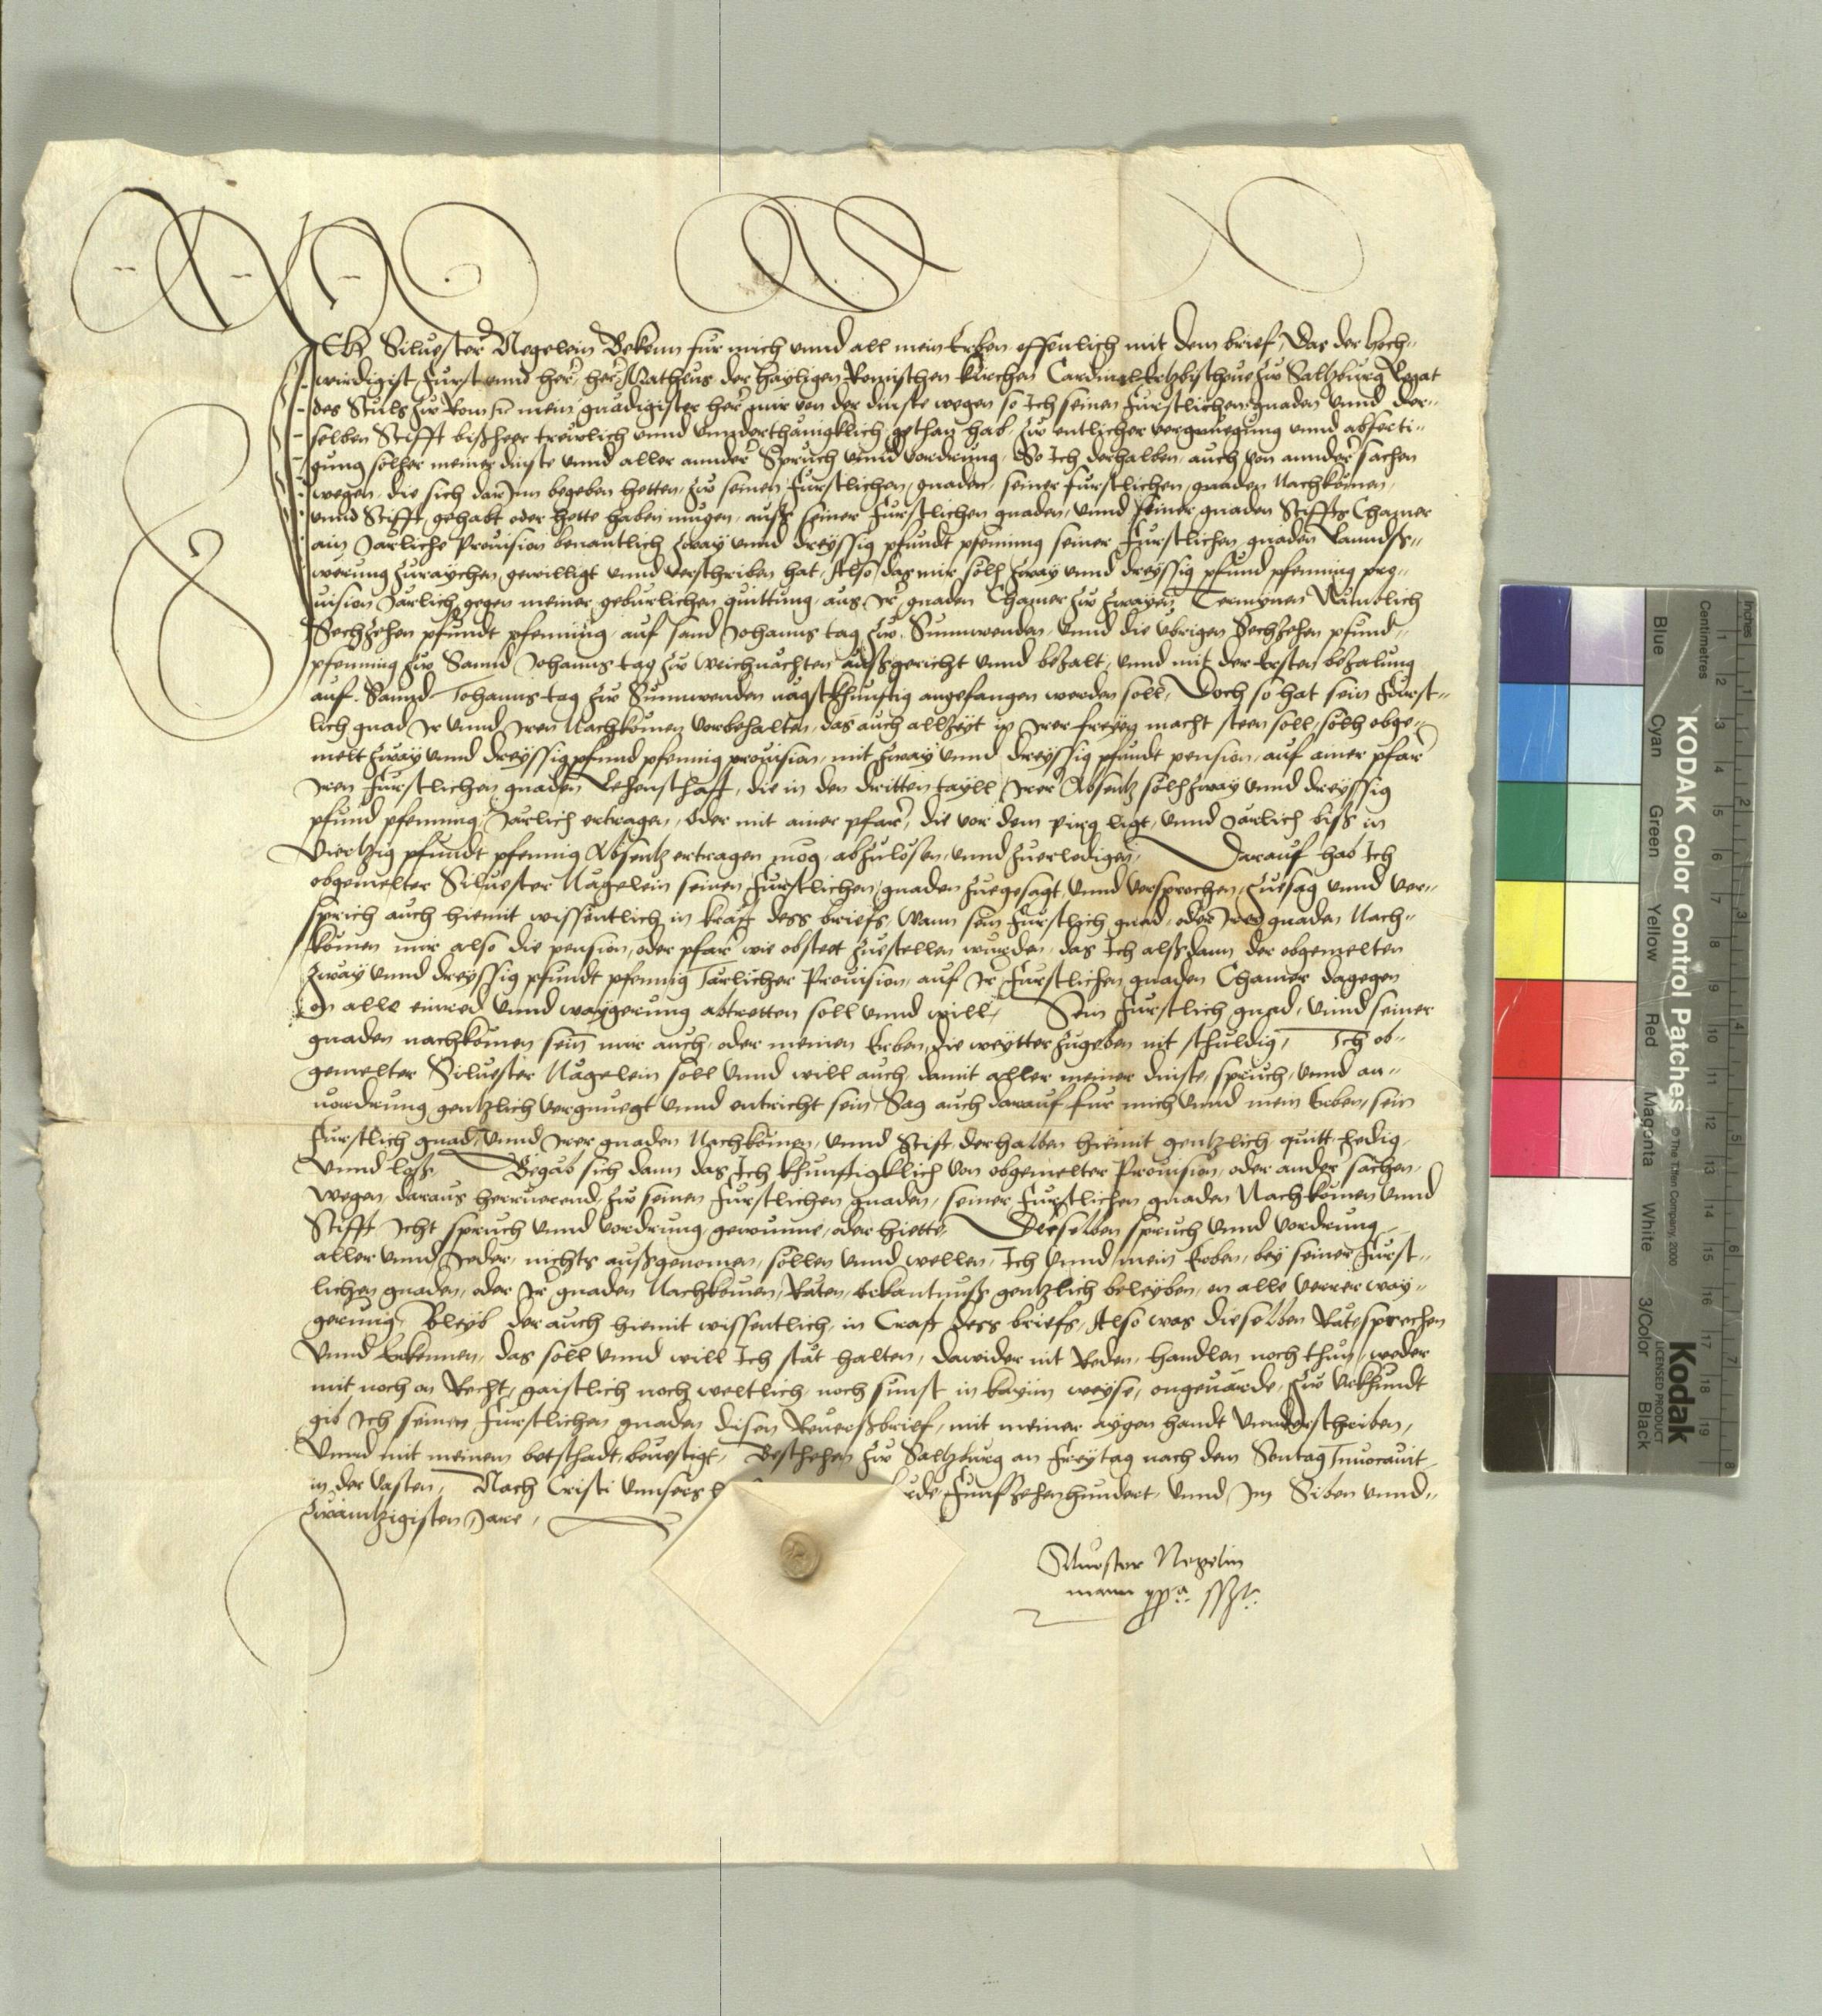 Ich Siluester Negelein Bekenn fur mich vnnd all mein Erben offenlich mit dem brief, Das der Hoch-
wirdigist Furst vnnd her, her Matheus der hayligen Romischen kirchen Cardinal Ertzbischoue zw Saltzburg Legat
des Stuls zw Rom &c mein gnadigister her mir von der dinste wegen so Ich seinen Furstlichen gnaden vnnd der-
selben Stifft bißheer trewlich vnnd vnnderthanigklich gethan hab, zw entlicher vergnuegung vnnd abferti-
gung solher meiner dinste vnnd aller annder Spruch vnnd vordrung, So Ich derhalben, auch von annder sachen
wegen, die sich darInn begeben hetten, zw seinen Furstlichen gnaden, seiner furstlichen gnaden Nachkomen,
vnnd Stifft, gehabt oder hette haben mugen, auss seiner Furstlichen gnaden, vnnd seiner gnaden Stiffts Chamer
ain Jarliche Prouision benantlich zway vnnd dreyssig pfundt pfenning seiner Furstlichen gnaden Lanndss-
werung zuraychen, gewilligt vnnd verschriben hat, Also das mir solh zway vnnd dreyssig pfund pfenning pro-
uision Jarlich gegen meiner geburlichen quittung, aus Ir gnaden Chamer zw zwayen Terminen Nämlich
Sechzehen pfundt pfenning auf sand Johanns tag zw Sunnwenden, vnnd die vbrigen Sechzehen pfund-
pfenning zw Sannd Johanns tag zw Weichnachten außgericht vnnd bezalt, vnnd mit der Ersten bezalung
auf Sannd Johanns tag zw Sunnwenden nagstkhunftig angefangen werden soll, Doch so hat sein Furst-
lich gnad Ir vnnd Iren Nachkomen vorbehalten, das auch allzeyt in Irer freyen macht steen soll, solh obge-
melt zway vnnd dreyssig pfund pfennig prouision, mit zway vnnd dreyssig pfundt pension, auf ainer pfar
Iren Furstlichen gnaden Lehenschafft, die in den dritten tayll Irer Absentz solh zway vnnd dreyssig
pfund pfenning Jarlich ertragen, oder mit ainer pfarr, die vor dem pirg ligt, vnnd Jarlich biß in
Viertzig pfundt pfennig Absentz ertragen mög, abzulosen, vnnd zuerledigen, Darauf hab Ich
obgemelter Siluester Nägelein seinen Furstlichen gnaden zuegesagt vnnd versprochen, zuesag vnnd ver-
sprich auch hiemit wissentlich in krafft dess briefs, Wann sein Furstlich gnad, oder Irer gnaden Nach-
komen mir also die pension, oder pfar wie obsteet zuestellen wurden, das Ich alßdann der obgemelten
zway vnnd dreyssig pfundt pfennig Jarlicher Prouision, auf Ir Furstlichen gnaden Chamer dagegen
on alle einred vnnd waygerung abtretten soll vnnd will, Sein Furstlich gnad, vnnd seiner
gnaden nachkomen sein mir auch, oder meinen Erben, die weytter zugeben nit schuldig, Ich ob-
gemelter Siluester Nägelein soll vnnd will auch damit aller meiner dinste, spruch, vnnd an-
uordrung gentzlich vergnuegt vnnd entricht sein, Sag auch darauf fur mich vnnd mein Erben, sein
Furstlich gnad, vnnd Irer gnaden Nachkomen, vnnd Stift derhalben hiemit gentzlich quitt, ledig,
vnnd loss, Begäb sich dann das Ich khunftigklich von obgemelter Prouision, oder ander sachen,
wegen, daraus herruerend, zw seinen Furstlichen gnaden, seiner Furstlichen gnaden Nachkomen vnnd
Stifft Icht spruch vnnd vordrung, gewunne, oder hiette, Dieselben spruch vnnd vordrung
aller vnnd Ieder, nichts außgenomen, sollen vnnd wellen, Ich vnnd mein Erben, bey seiner Furst-
lichen gnaden, oder Ir gnaden Nachkomen, Räten, Erkantnuss gentzlich beleyben, on alle verrer way-
gerung, Bleyb der auch hiemit wissentlich, in Crafft dess briefs, Also was dieselben Räte sprechen
vnnd Erkennen, das soll vnnd will Ich stät halten, dawider nit Reden, handlen noch thun, weder
mit noch on Recht, gaistlich noch weltlich, noch sunst in kayin weyse, ongeuärde, Zw Vrkhundt
gib Ich seinen Furstlichen gnaden disen Reuerßbrief, mit meiner aygen handt vnnderschriben,
vnnd mit meinem betschadt beuestigt, Beschehen zw Saltzburg an Freytag nach dem Sontag Inuocauit
in der Vasten, Nach Cristi vnnsers h urde, Funffzehenhundert, vnnd Im Siben vnnd-
zwaintzigisten Jare,
Siluester Negelin
manu ppa sszt
Inches
Centimetres
Blue Cyan Green Yellow Red Magenta White 3/Color Black
KODAK Color Control Patches © The Tiffen Company, 2000
Kodak
LICENSED PRODUCT